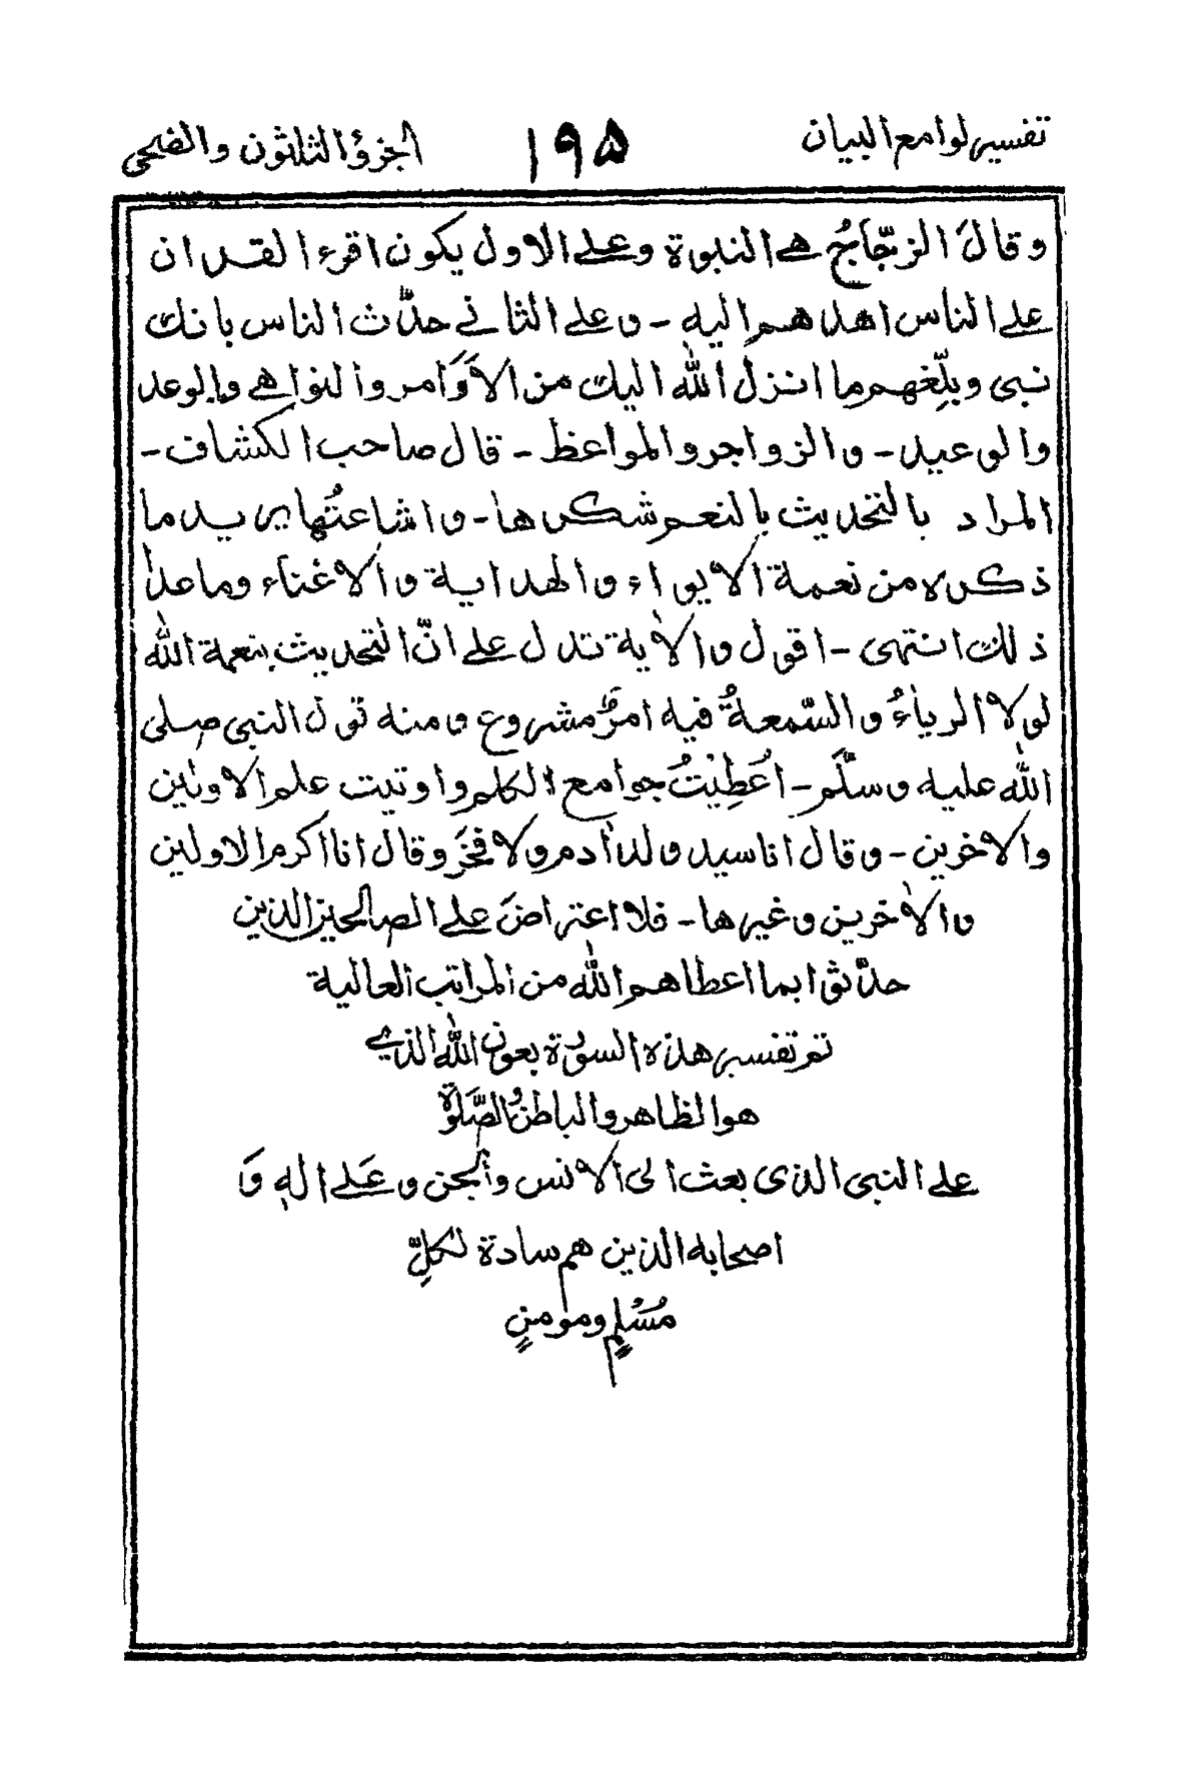 تفسير لوامع البيان ١٩٥ الجزؤ الثلثون والضحى
وقالَ الزجّاجُ هے النبوة وعلے الاول يكون اقرء القران
علے الناس اهداهم اليه - وعلے الثانے حدّث الناس بانك
نبى وبلِّغهم ما انزل الله اليك من الاَوَامر والنواهے والوعد
والوعيد - والزواجر والمواعظ - قال صاحب الكشاف -
المراد بالتحديث بالنعم شكرها - واشاعتُها يريد ما
ذكره من نعمة الايواء والهداية والاغناء وما عدا
ذلك انتهى - اقول والاٰية تدل علے انّ التحديث بنعمة الله
لولا الرياءُ والسّمعةُ فيه امرٌ مشروع ومنه قول النبى صلى
الله عليه وسلّم - اُعطِيْتُ جوامع الكلم واوتيت علم الاولين
والاٰخرين - وقال انا سيد ولد اٰدم ولا فخرَ وقال انا اكرم الاولين
والاٰخرين وغيرها - فلا اعتراضَ علے الصالحين الذين
حدّثوا بما اعطاهم الله من المراتب العالية
تم تفسير هذه السورة بعون الله الذے
هو الظاهر والباطنُ والصَّلوٰة
علے النبى الذى بعث الى الانس والجن وعَلے اٰلهٖ وَ
اصحابه الذين هم سادة لكلِّ
مُسْلمٍ ومومنٍ